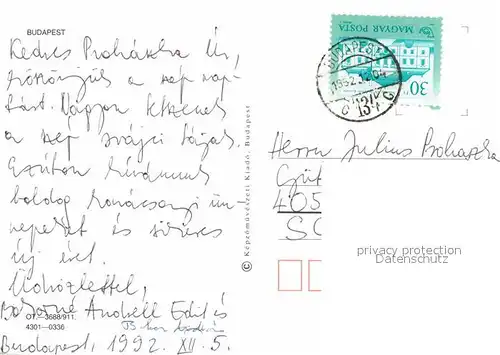 BUDAPEST
Kedves Prohászka Úr,
köszönjük a szép nap-
tárt. Nagyon tetszenek
a szép svájci tájak.
Ezúton kívánunk
boldog karácsonyi ün-
nepeket és sikeres
új évet.
Üdvözlettel,
Andrell Edit és
OT.—3688/911.
4301—0336
Budapest, 1992. XII. 5.
© Képzőművészeti Kiadó, Budapest
MAGYAR POSTA
30
BUDAPEST
1992.12.04
134
Herrn Julius Prohaszka
Güt
405
SC
privacy protection
Datenschutz